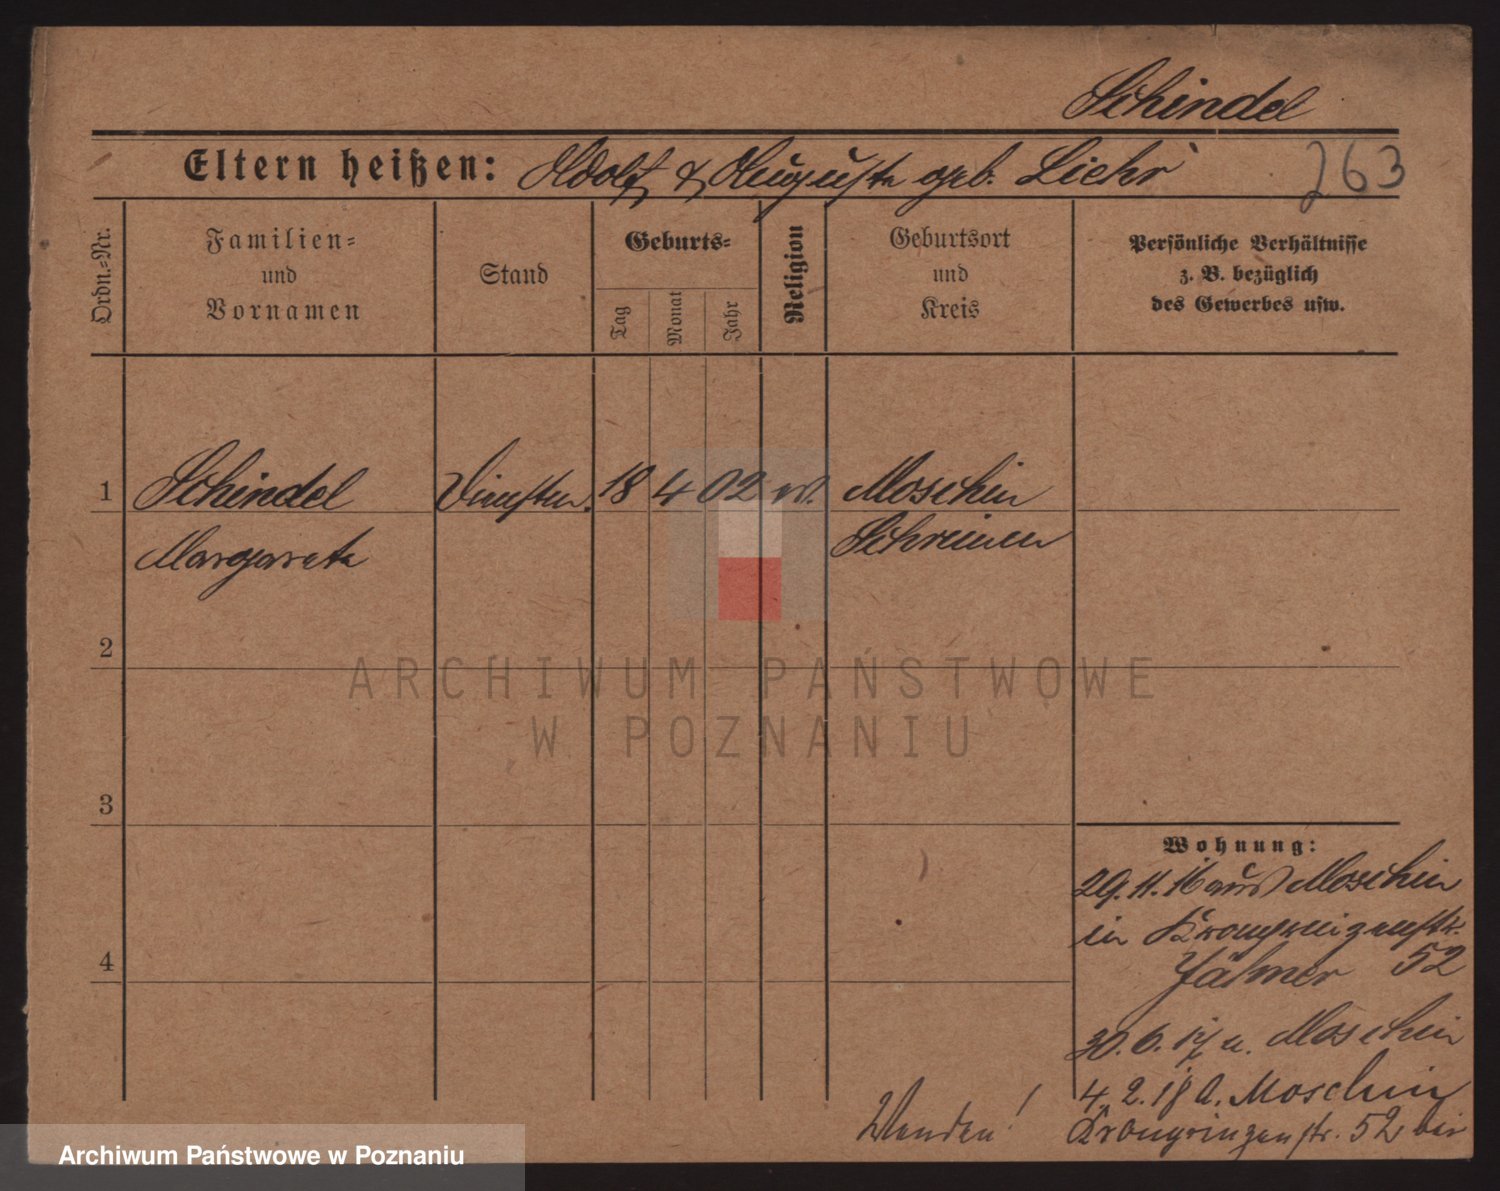 Schindel
Eltern heißen: Adolf & Auguste geb. Liehr
263
Ordn.-Nr.
Familien-
und
Vornamen
Stand
Geburts-
Tag
Monat
Jahr
Religion
Geburtsort
und
Kreis
Persönliche Verhältnisse
z. B. bezüglich
des Gewerbes usw.
1 Schindel 18 4 02 ev. Moschin
Margarete Schrimm
2
3
4
Wohnung:
29.11.16 aus Moschin
in Kronprinzenstr.
52
30.6.17 n. Moschin
4.2.18 a. Moschin
Kronprinzenstr. 52 bei
Wenden!
ARCHIWUM PAŃSTWOWE
W POZNANIU
Archiwum Państwowe w Poznaniu